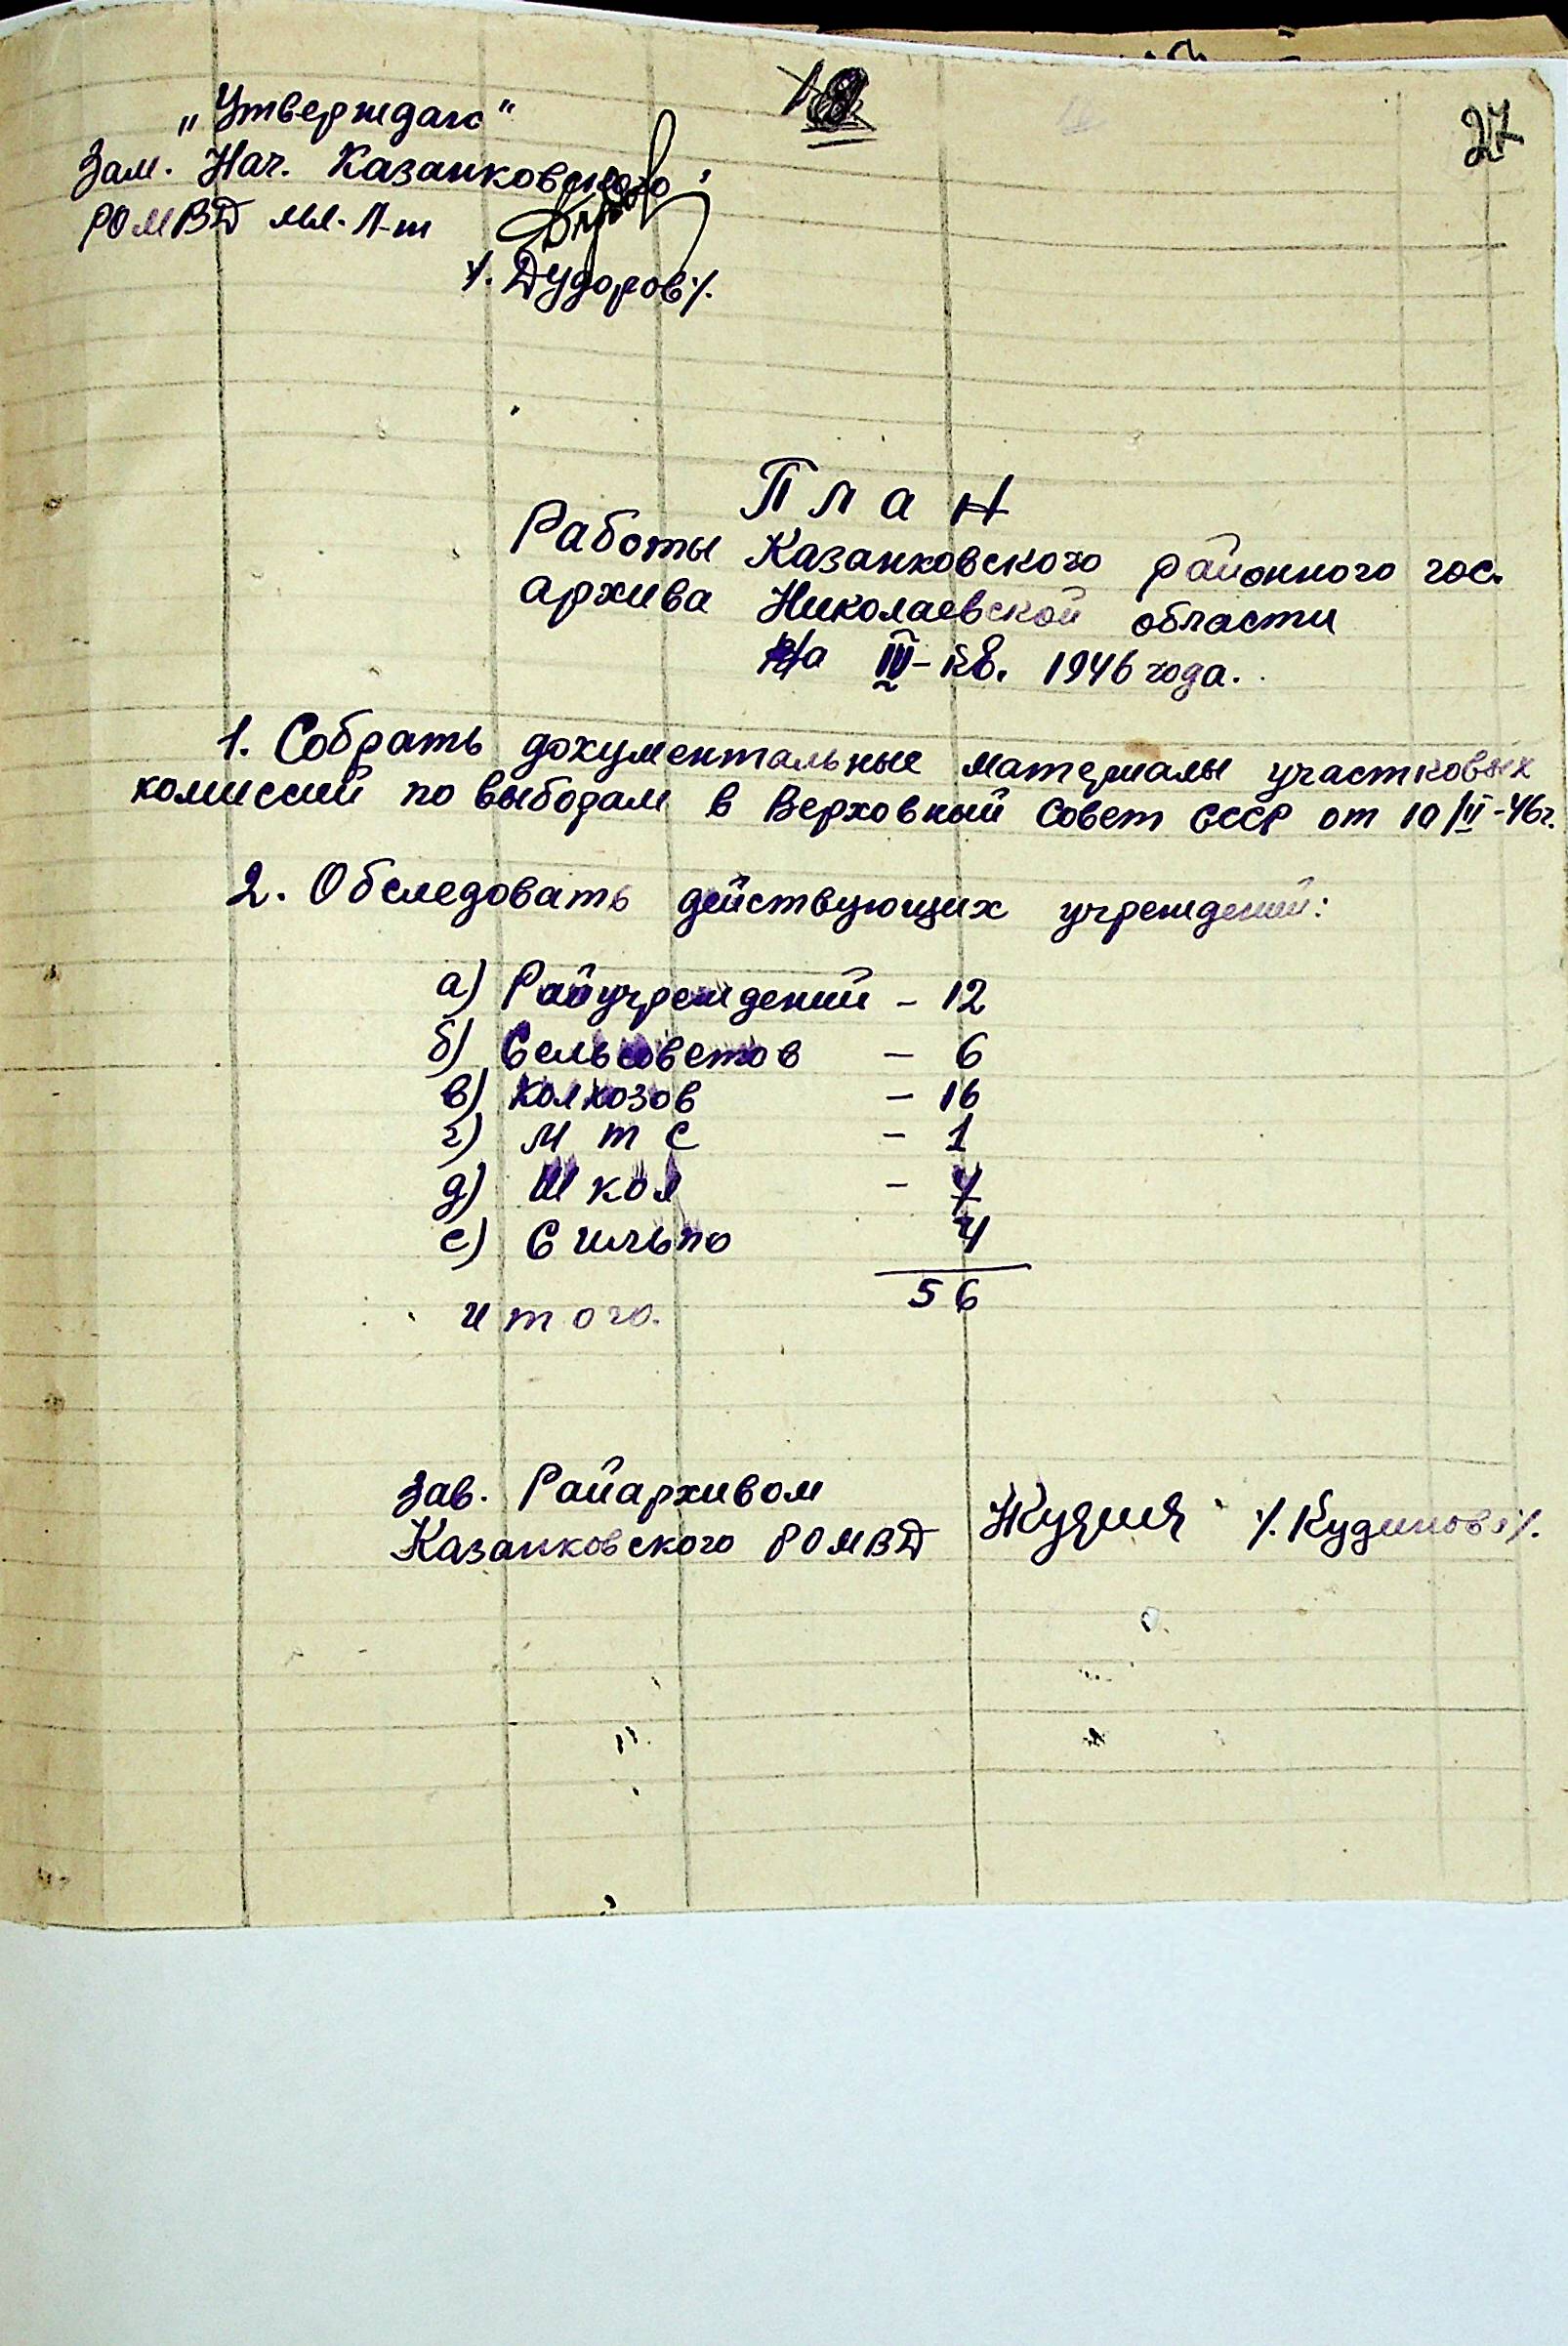 27
„Утверждаю“
Зам. Нач. Казанковского
РОМВД мл. Л-т
/. Дудоров /.
План
Работы Казанковского районного гос.
архива Николаевской области
На IV-кв. 1946 года.
1. Собрать документальные материалы участковых
комиссий по выборам в Верховный Совет СССР от 10/II-46г.
2. Обследовать действующих учреждений:
а) Райучреждений - 12
б) Сельсоветов - 6
в) Колхозов - 16
г) М т С - 1
д) Школ -
е) Сильпо 4
итого. 56
Зав. Райархивом
Казанковского РОМВД /. Кудинов /.